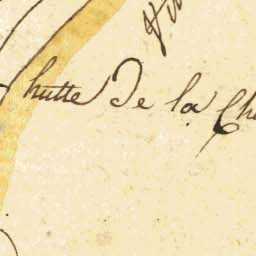 hutte De la Ch